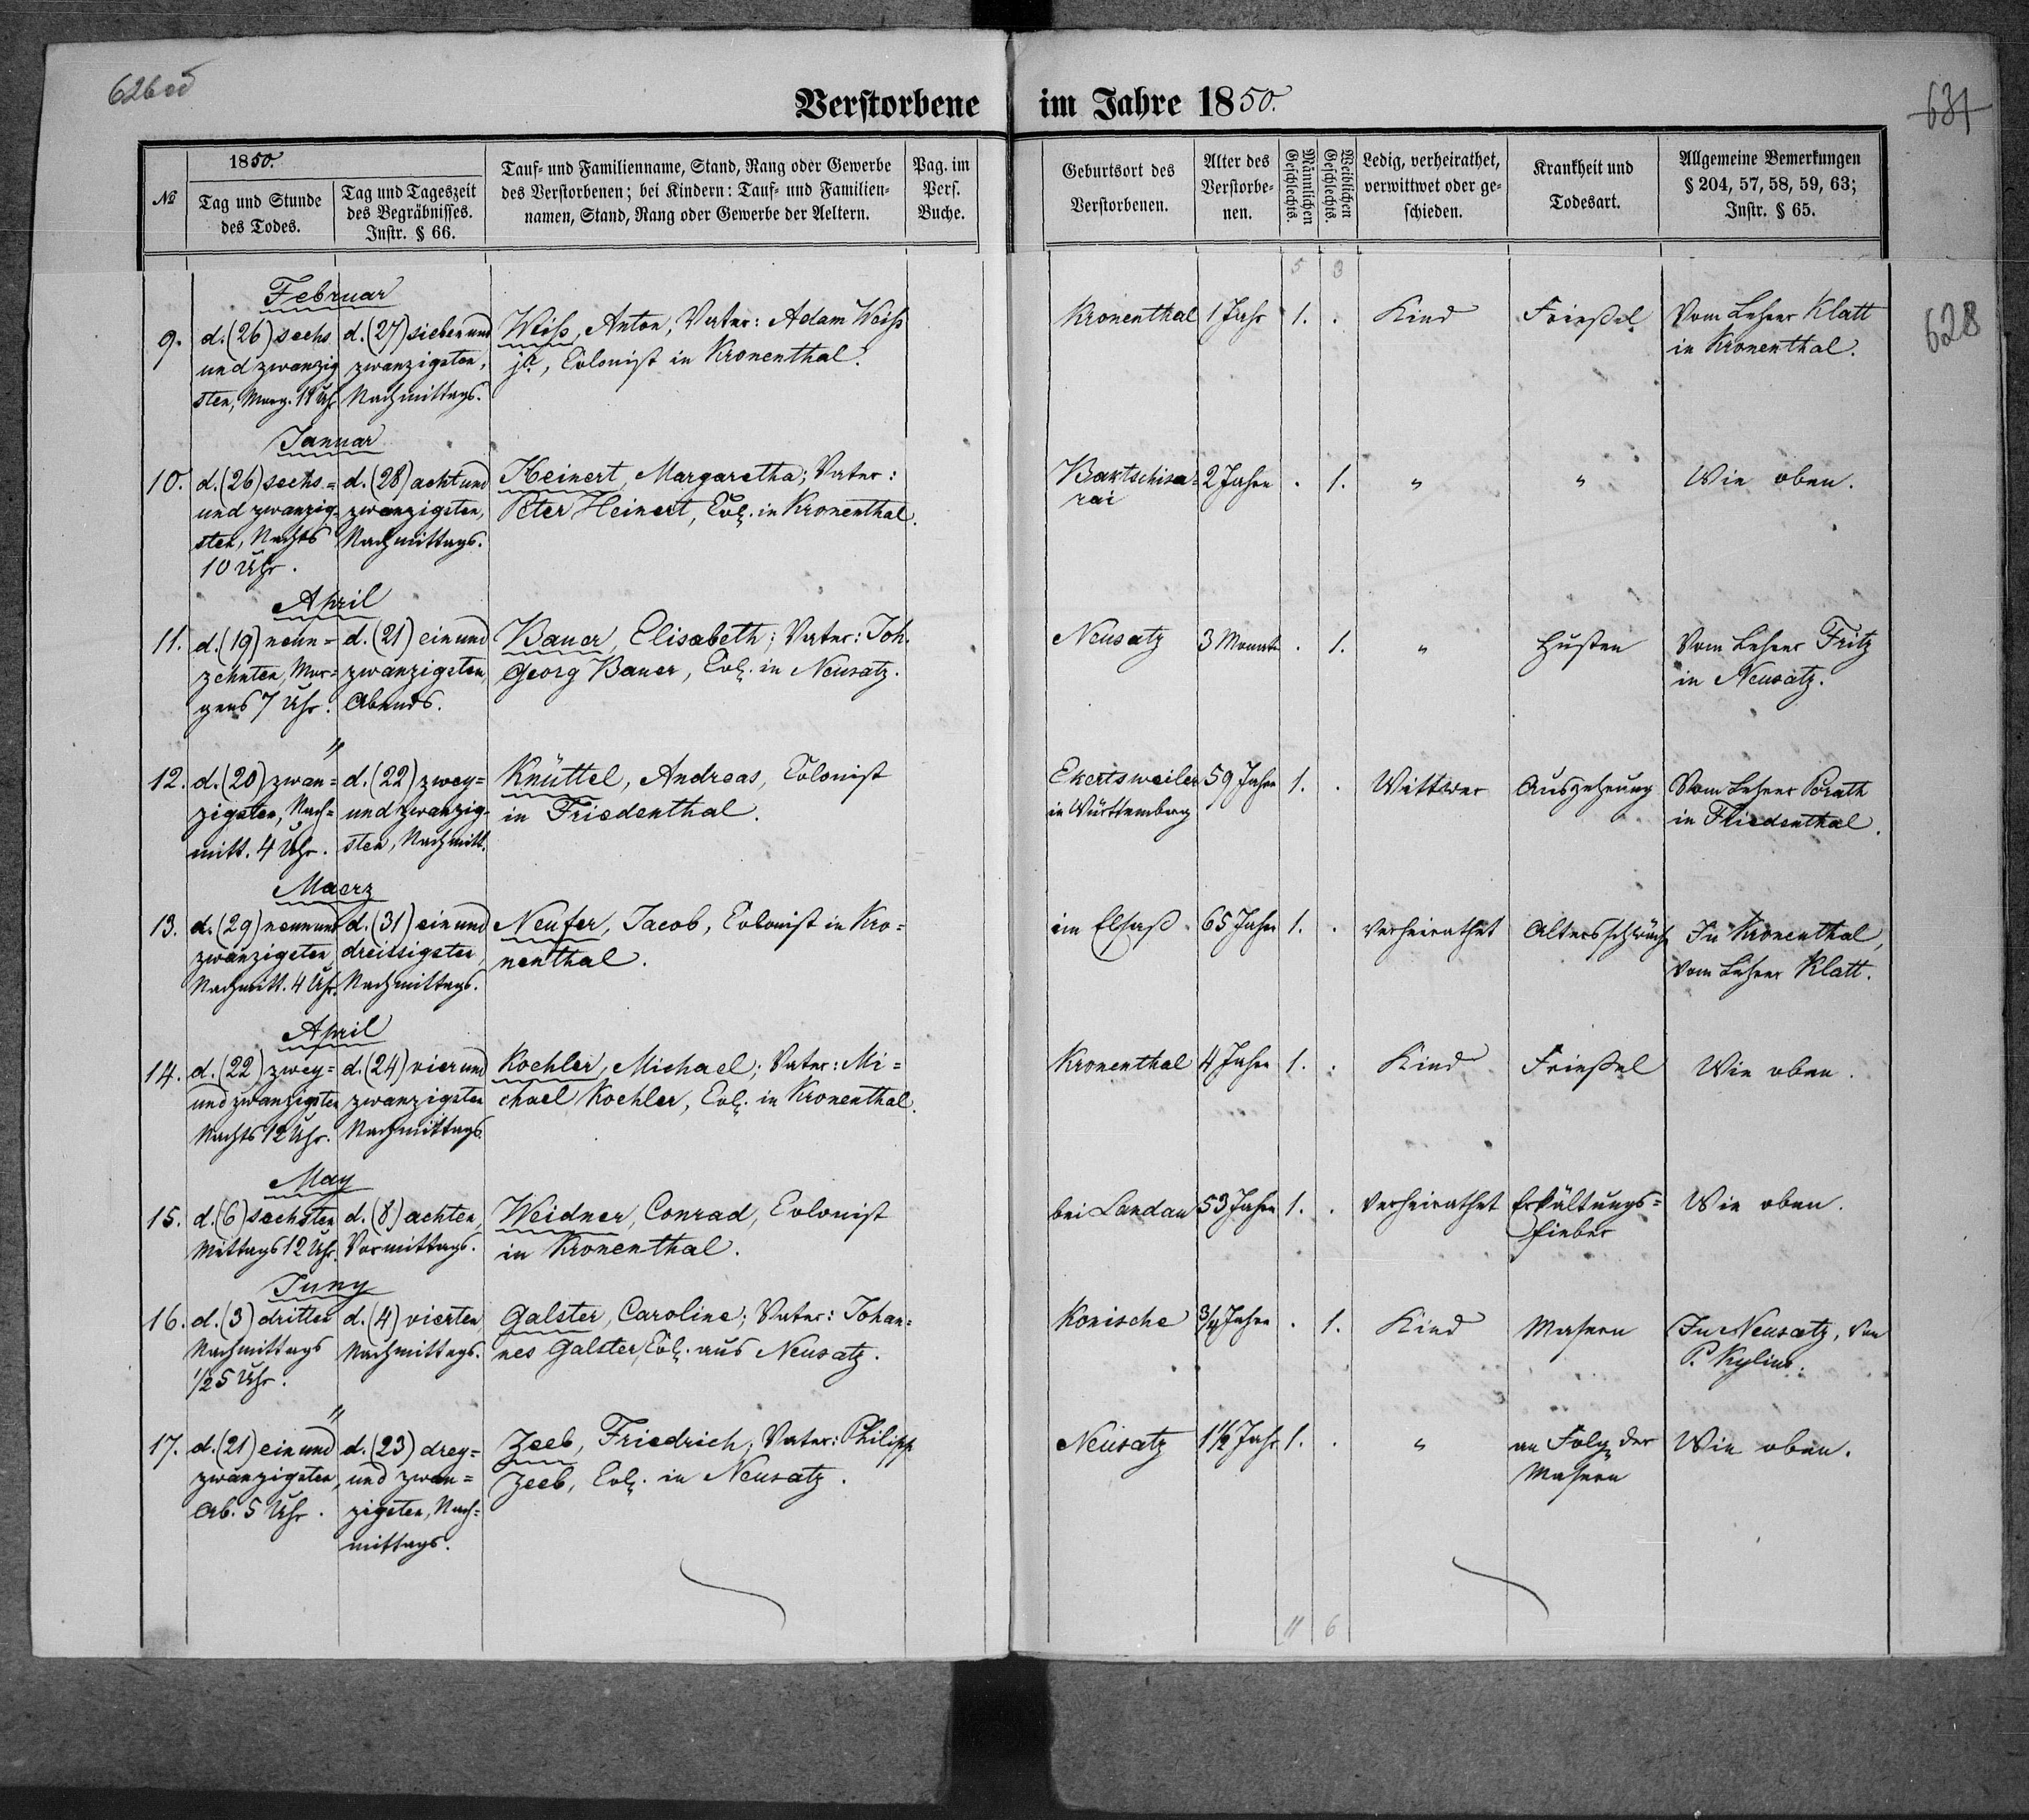 626 od
Verstorbene im Jahre 1850.
631
628
№
1850.
Tag und Stunde
des Todes.
Tag und Tageszeit
des Begräbnisses.
Instr. § 66.
Tauf- und Familienname, Stand, Rang oder Gewerbe
des Verstorbenen; bei Kindern: Tauf- und Familien-
namen, Stand, Rang oder Gewerbe der Aeltern.
Pag. im
Pers.
Buche.
Geburtsort des
Verstorbenen.
Alter des
Verstorbe-
nen.
Männlichen
Geschlechts.
Weiblichen
Geschlechts.
Ledig, verheirathet,
verwittwet oder ge-
schieden.
Krankheit und
Todesart.
Allgemeine Bemerkungen
§ 204, 57, 58, 59, 63;
Instr. § 65.
5 3
Februar
9. d. (26) sechs d. (27) sieben und Weiß, Anton, Vater: Adam Weiß Kronenthal 1 Jahr 1. . Kind Frießel Vom Lehrer Klatt
und zwanzig zwanzigsten, jr, Colonist in Kronenthal. in Kronenthal.
sten, Morg. 11 Uhr Nachmittags.
Januar
10. d. (26) sechs= d. (28) acht und Heinert, Margaretha; Vater: Baktschisa= 2 Jahre . 1. " " Wie oben.
und zwanzig- zwanzigsten, Peter Heinert, Col. in Kronenthal. rai
sten, Nachts Nachmittags.
10 Uhr.
April
11. d. (19) neun= d. (21) ein und Bauer, Elisabeth; Vater: Joh. Neusatz 3 Monate . 1. " Husten Vom Lehrer Fritz
zehnten, Mor= zwanzigsten, Georg Bauer, Col. in Neusatz. in Neusatz.
gens 7 Uhr. Abends.
"
12. d. (20) zwan= d. (22) zwey= Knüttel, Andreas, Colonist Ekertsweiler 59 Jahre 1. . Wittwer Auszehrung Vom Lehrer Porath
zigsten, Nach= und zwanzig- in Friedenthal. in Württemberg in Friedenthal.
mitt. 4 Uhr. sten, Nachmitt.
Maerz
13. d. (29) neun und d. (31) ein und Neufer, Jacob, Colonist in Kro= im Elsaß 65 Jahre 1. . Verheirathet Altersschwäche In Kronenthal,
zwanzigsten, dreissigsten, nenthal. Vom Lehrer Klatt.
Nachmitt. 4 Uhr. Nachmittags.
April
14. d. (22) zwey= d. (24) vier und Koehler, Michael; Vater: Mi= Kronenthal 4 Jahre 1. . Kind Frießel Wie oben.
und zwanzigsten zwanzigsten chael Koehler, Col. in Kronenthal.
Nachts 12 Uhr. Nachmittags.
May
15. d. (6) sechsten d. (8) achten, Weidner, Conrad, Colonist bei Landau 53 Jahre 1. . Verheirathet Erkältungs= Wie oben.
Mittags 12 Uhr. Vormittags. in Kronenthal. fieber
Juny
16. d. (3) dritten d. (4) vierten Galster, Caroline; Vater: Johan= Konische 3/4 Jahre . 1. Kind Masern In Neusatz, von
Nachmittags Nachmittags. nes Galster, Col. aus Neusatz. P. Kylius.
1/2 5 Uhr.
"
17. d. (21) ein und d. (23) drey= Zeeb, Friedrich; Vater: Philipp Neusatz 1 1/2 Jahr 1. . " an Folge der Wie oben.
zwanzigsten, und zwan= Zeeb, Col. in Neusatz. Masern
Ab. 5 Uhr. zigsten, Nach=
mittags.
11 6